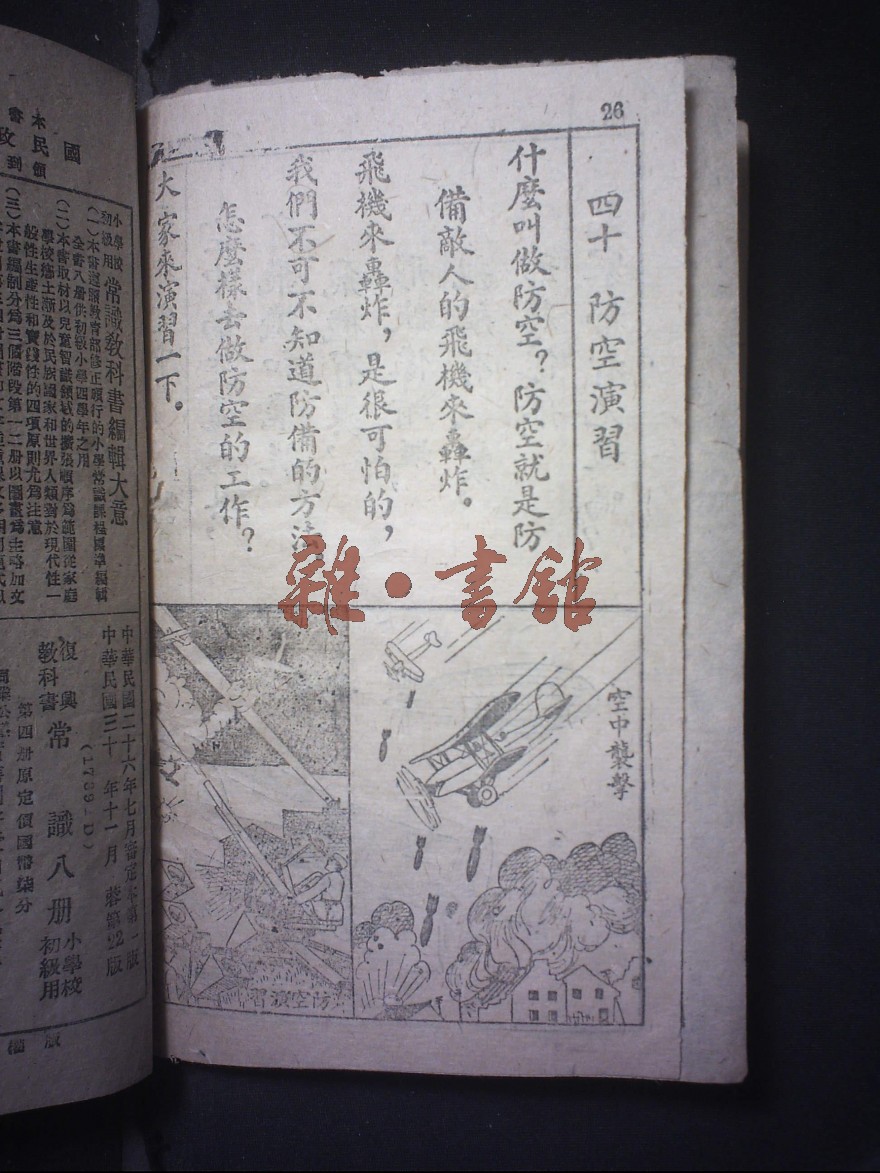 26
四十 防空演習
什麽叫做防空？防空就是防
備敵人的飛機來轟炸。
飛機來轟炸，是很可怕的，
我們不可不知道防備的方法。
怎麽樣去做防空的工作？
大家來演習一下。
空中襲擊
防空演習
雜·書館
國
本
民
小學校
初級用
常識教科書編輯大意
（一）本書遵照教育部修正頒行的小學常識課程標準編輯
全書八册供初級小學四學年之用
（二）本書取材以兒童智識領域的擴張順序爲範圍從家庭
學校鄉土漸及於民族國家和世界人類對於現代性一
般性生產性和實踐性的四項原則尤爲注意
（三）本書編制分爲三個階段第一二册以圖畫爲主略加文
中華民國二十六年七月審定本第一版
中華民國三十年十一月蓉第22版
(1789-D)
復興
教科書
常識八册
小學校
初級用
第四册原定價國幣柒分
版